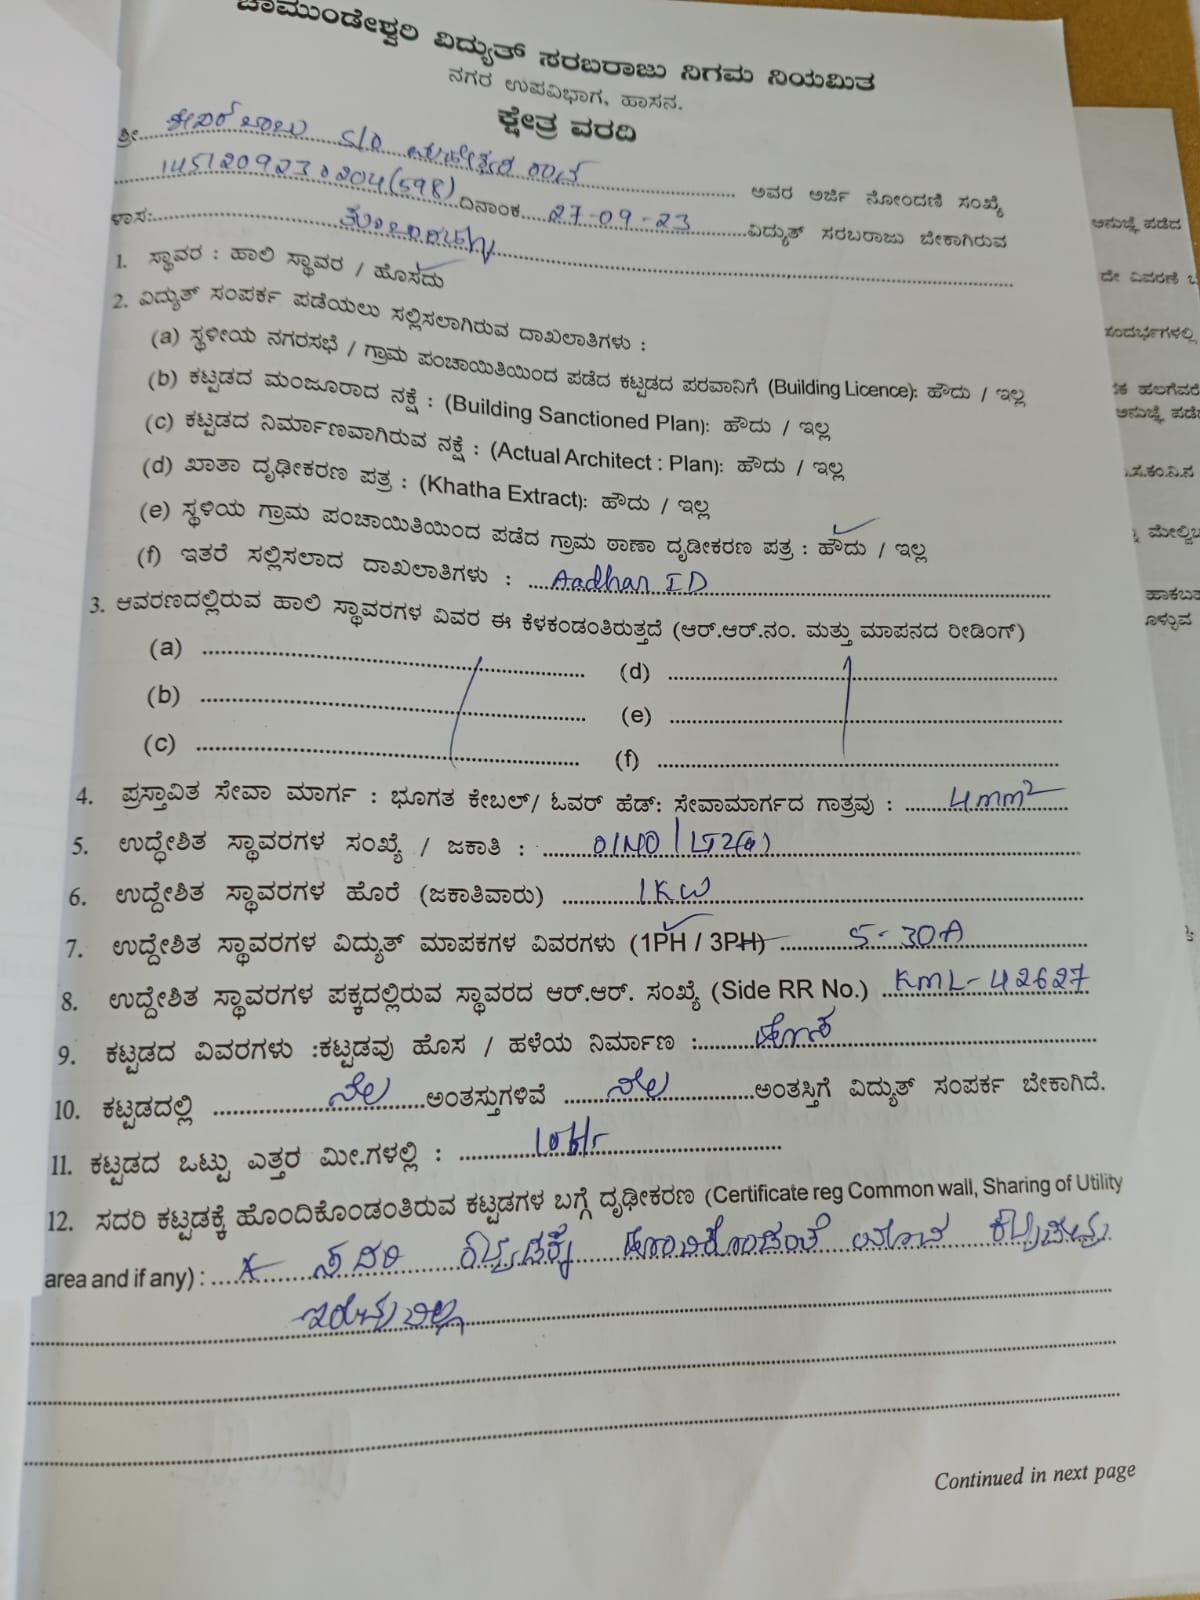 ಚಾಮುಂಡೇಶ್ವರಿ ವಿದ್ಯುತ್ ಸರಬರಾಜು ನಿಗಮ ನಿಯಮಿತ
ನಗರ ಉಪವಿಭಾಗ, ಹಾಸನ.
ಕ್ಷೇತ್ರ ವರದಿ
ಶ್ರೀ.... ಬಾಬು S/O ........ ಅವರ ಅರ್ಜಿ ನೋಂದಣಿ ಸಂಖ್ಯೆ
....1451209230204(598)..ದಿನಾಂಕ....27-09-23.......ವಿದ್ಯುತ್ ಸರಬರಾಜು ಬೇಕಾಗಿರುವ
ಳಾಸ:........
1. ಸ್ಥಾವರ : ಹಾಲಿ ಸ್ಥಾವರ / ಹೊಸದು
2. ವಿದ್ಯುತ್ ಸಂಪರ್ಕ ಪಡೆಯಲು ಸಲ್ಲಿಸಲಾಗಿರುವ ದಾಖಲಾತಿಗಳು :
(a) ಸ್ಥಳೀಯ ನಗರಸಭೆ / ಗ್ರಾಮ ಪಂಚಾಯಿತಿಯಿಂದ ಪಡೆದ ಕಟ್ಟಡದ ಪರವಾನಿಗೆ (Building Licence): ಹೌದು / ಇಲ್ಲ
(b) ಕಟ್ಟಡದ ಮಂಜೂರಾದ ನಕ್ಷೆ : (Building Sanctioned Plan): ಹೌದು / ಇಲ್ಲ
(c) ಕಟ್ಟಡದ ನಿರ್ಮಾಣವಾಗಿರುವ ನಕ್ಷೆ : (Actual Architect : Plan): ಹೌದು / ಇಲ್ಲ
(d) ಖಾತಾ ದೃಢೀಕರಣ ಪತ್ರ : (Khatha Extract): ಹೌದು / ಇಲ್ಲ
(e) ಸ್ಥಳಿಯ ಗ್ರಾಮ ಪಂಚಾಯಿತಿಯಿಂದ ಪಡೆದ ಗ್ರಾಮ ಠಾಣಾ ದೃಡೀಕರಣ ಪತ್ರ : ಹೌದು / ಇಲ್ಲ
(f) ಇತರೆ ಸಲ್ಲಿಸಲಾದ ದಾಖಲಾತಿಗಳು : ....Aadhar ID........
3. ಆವರಣದಲ್ಲಿರುವ ಹಾಲಿ ಸ್ಥಾವರಗಳ ವಿವರ ಈ ಕೆಳಕಂಡಂತಿರುತ್ತದೆ (ಆರ್.ಆರ್.ನಂ. ಮತ್ತು ಮಾಪನದ ರೀಡಿಂಗ್)
(a) ........ (d) ........
(b) ........ (e) ........
(c) ........ (f) ........
4. ಪ್ರಸ್ತಾವಿತ ಸೇವಾ ಮಾರ್ಗ : ಭೂಗತ ಕೇಬಲ್/ ಓವರ್ ಹೆಡ್: ಸೇವಾಮಾರ್ಗದ ಗಾತ್ರವು : ....4mm²....
5. ಉದ್ಧೇಶಿತ ಸ್ಥಾವರಗಳ ಸಂಖ್ಯೆ / ಜಕಾತಿ : ....01NO / LT2(a)....
6. ಉದ್ದೇಶಿತ ಸ್ಥಾವರಗಳ ಹೊರೆ (ಜಕಾತಿವಾರು) ....1KW....
7. ಉದ್ದೇಶಿತ ಸ್ಥಾವರಗಳ ವಿದ್ಯುತ್ ಮಾಪಕಗಳ ವಿವರಗಳು (1PH / 3PH) ....5-30A....
8. ಉದ್ದೇಶಿತ ಸ್ಥಾವರಗಳ ಪಕ್ಕದಲ್ಲಿರುವ ಸ್ಥಾವರದ ಆರ್.ಆರ್. ಸಂಖ್ಯೆ (Side RR No.) ..KML-42627
9. ಕಟ್ಟಡದ ವಿವರಗಳು :ಕಟ್ಟಡವು ಹೊಸ / ಹಳೆಯ ನಿರ್ಮಾಣ :....ಹೊಸ....
10. ಕಟ್ಟಡದಲ್ಲಿ ....ನೆಲ....ಅಂತಸ್ತುಗಳಿವೆ ....ನೆಲ....ಅಂತಸ್ತಿಗೆ ವಿದ್ಯುತ್ ಸಂಪರ್ಕ ಬೇಕಾಗಿದೆ.
11. ಕಟ್ಟಡದ ಒಟ್ಟು ಎತ್ತರ ಮೀ.ಗಳಲ್ಲಿ : ........
12. ಸದರಿ ಕಟ್ಟಡಕ್ಕೆ ಹೊಂದಿಕೊಂಡಂತಿರುವ ಕಟ್ಟಡಗಳ ಬಗ್ಗೆ ದೃಢೀಕರಣ (Certificate reg Common wall, Sharing of Utility
area and if any) : .... ಸದರಿ ಕಟ್ಟಡಕ್ಕೆ ಹೊಂದಿಕೊಂಡಂತೆ ಯಾವ ಕಟ್ಟಡವು
ಇರುವುದಿಲ್ಲ
Continued in next page
ಅನುಜ್ಞೆ ಪಡೆದ
ದೇ ವಿವರಣೆ
ಸಂದರ್ಭಗಳಲ್ಲಿ